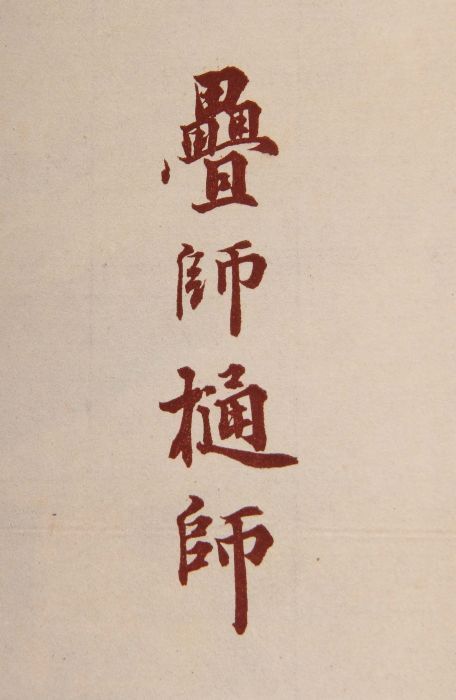 疊師樋師